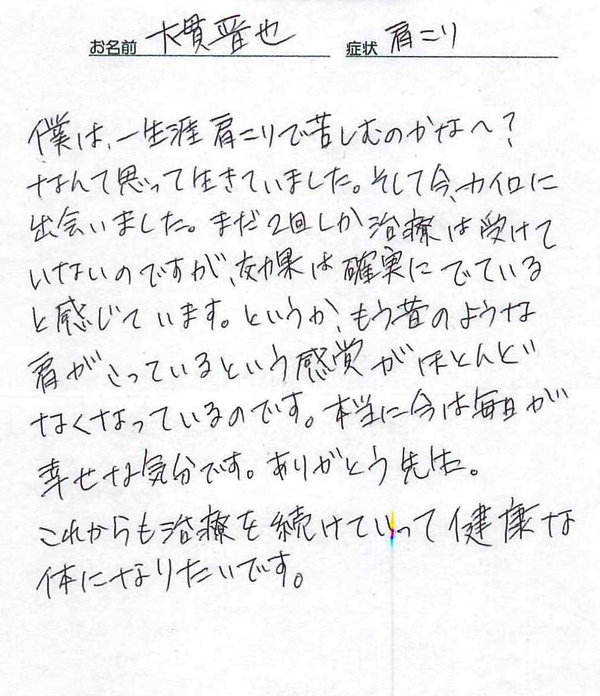 お名前 大貫晋也 症状 肩こり
僕は、一生涯肩こりで苦しむのかなへ?
なんて思って生きていました。そして今、カイロに
出会いました。まだ2回しか治療は受けて
いないのですが、効果は確実にでている
と感じています。というか、もう昔のような
肩がこっているという感覚がほとんど
なくなっているのです。本当に今は毎日が
幸せな気分です。ありがとう先生。
これからも治療を続けていって健康な
体になりたいです。